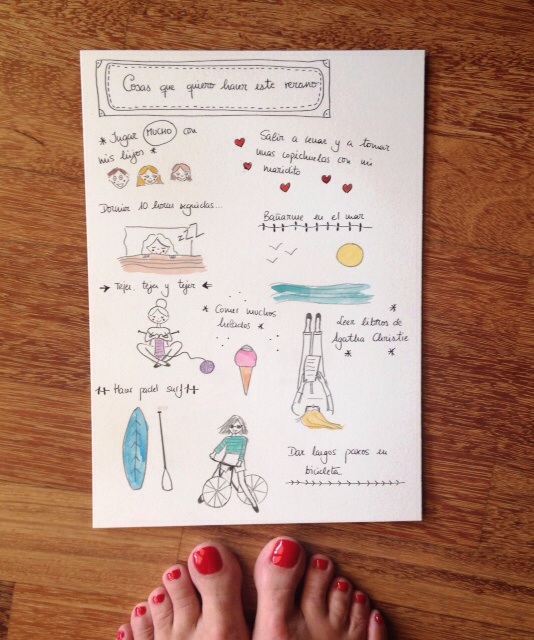 Cosas que quiero hacer este verano
* Jugar MUCHO con
mis hijos *
Salir a cenar y a tomar
unas copichuelas con mi
maridito
Dormir 10 horas seguidas...
zZZ
Bañarme en el mar
Tejer, tejer y tejer
* Comer muchos
helados *
Leer libros de
Agatha Christie
Hacer padel surf
Dar largos paseos en
bicicleta